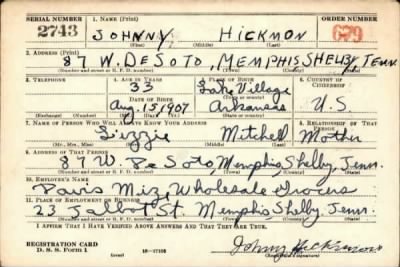 SERIAL NUMBER 1. NAME (Print) ORDER NUMBER
2743 JOHNNY HICKMON
(First) (Middle) (Last)
2. ADDRESS (Print)
87 W. DESOTO, MEMPHIS SHELBY, TENN.
(Number and street or R. F. D. number) (Town) (County) (State)
3. TELEPHONE 4. AGE IN YEARS 5. PLACE OF BIRTH 6. COUNTRY OF CITIZENSHIP
33 Lake Village
DATE OF BIRTH
Aug. 15 1907 Arkansas U.S.
(Exchange) (No.) (Mo.) (Day) (Yr.) (State or country)
7. NAME OF PERSON WHO WILL ALWAYS KNOW YOUR ADDRESS RELATIONSHIP OF THAT PERSON
Lizzie Mitchell Mother
(Mr., Mrs., Miss) (First) (Middle) (Last)
8. ADDRESS OF THAT PERSON
87 W. De Soto, Memphis, Shelby, Tenn.
(Number and street or R. F. D. number) (Town) (County) (State)
10. EMPLOYER'S NAME
Davis Miz, Wholesale Grocers
11. PLACE OF EMPLOYMENT OR BUSINESS
23 Talbot St. Memphis Shelby, Tenn.
(Number and street or R. F. D. number) (Town) (County) (State)
I AFFIRM THAT I HAVE VERIFIED ABOVE ANSWERS AND THAT THEY ARE TRUE.
REGISTRATION CARD
D. S. S. Form 1 Johny Hickmon